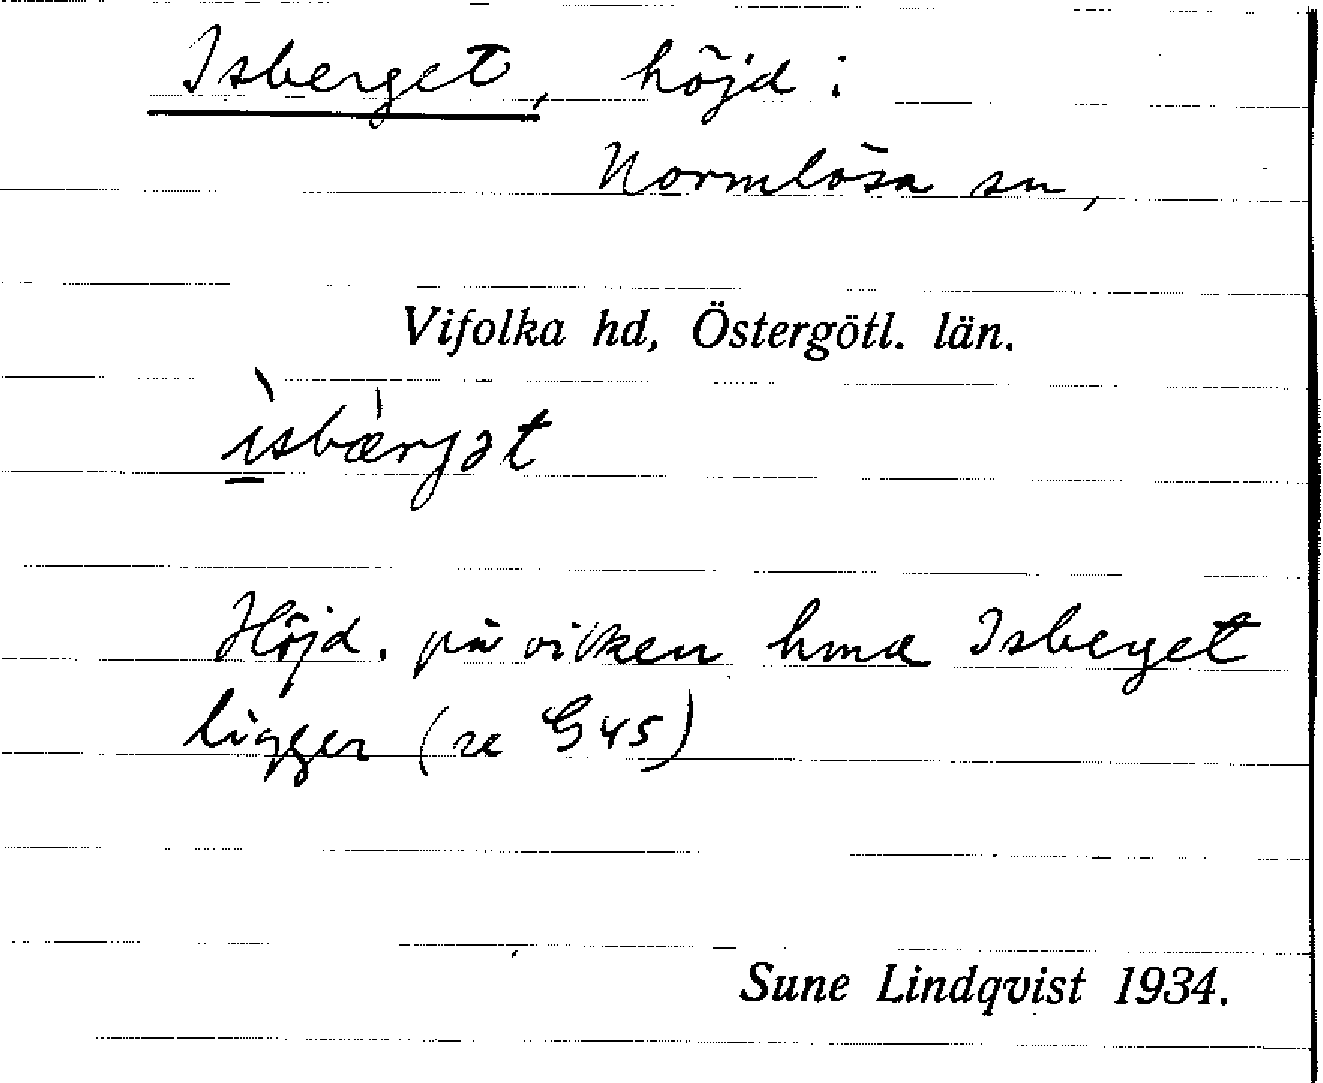 Isberget, höjd i
Normlösa sn,
Vifolka hd, Östergötl. län.
ìsbæ̀rjət
Höjd. på vilken hmd Isberget
ligger (se G 45)
Sune Lindqvist 1934.